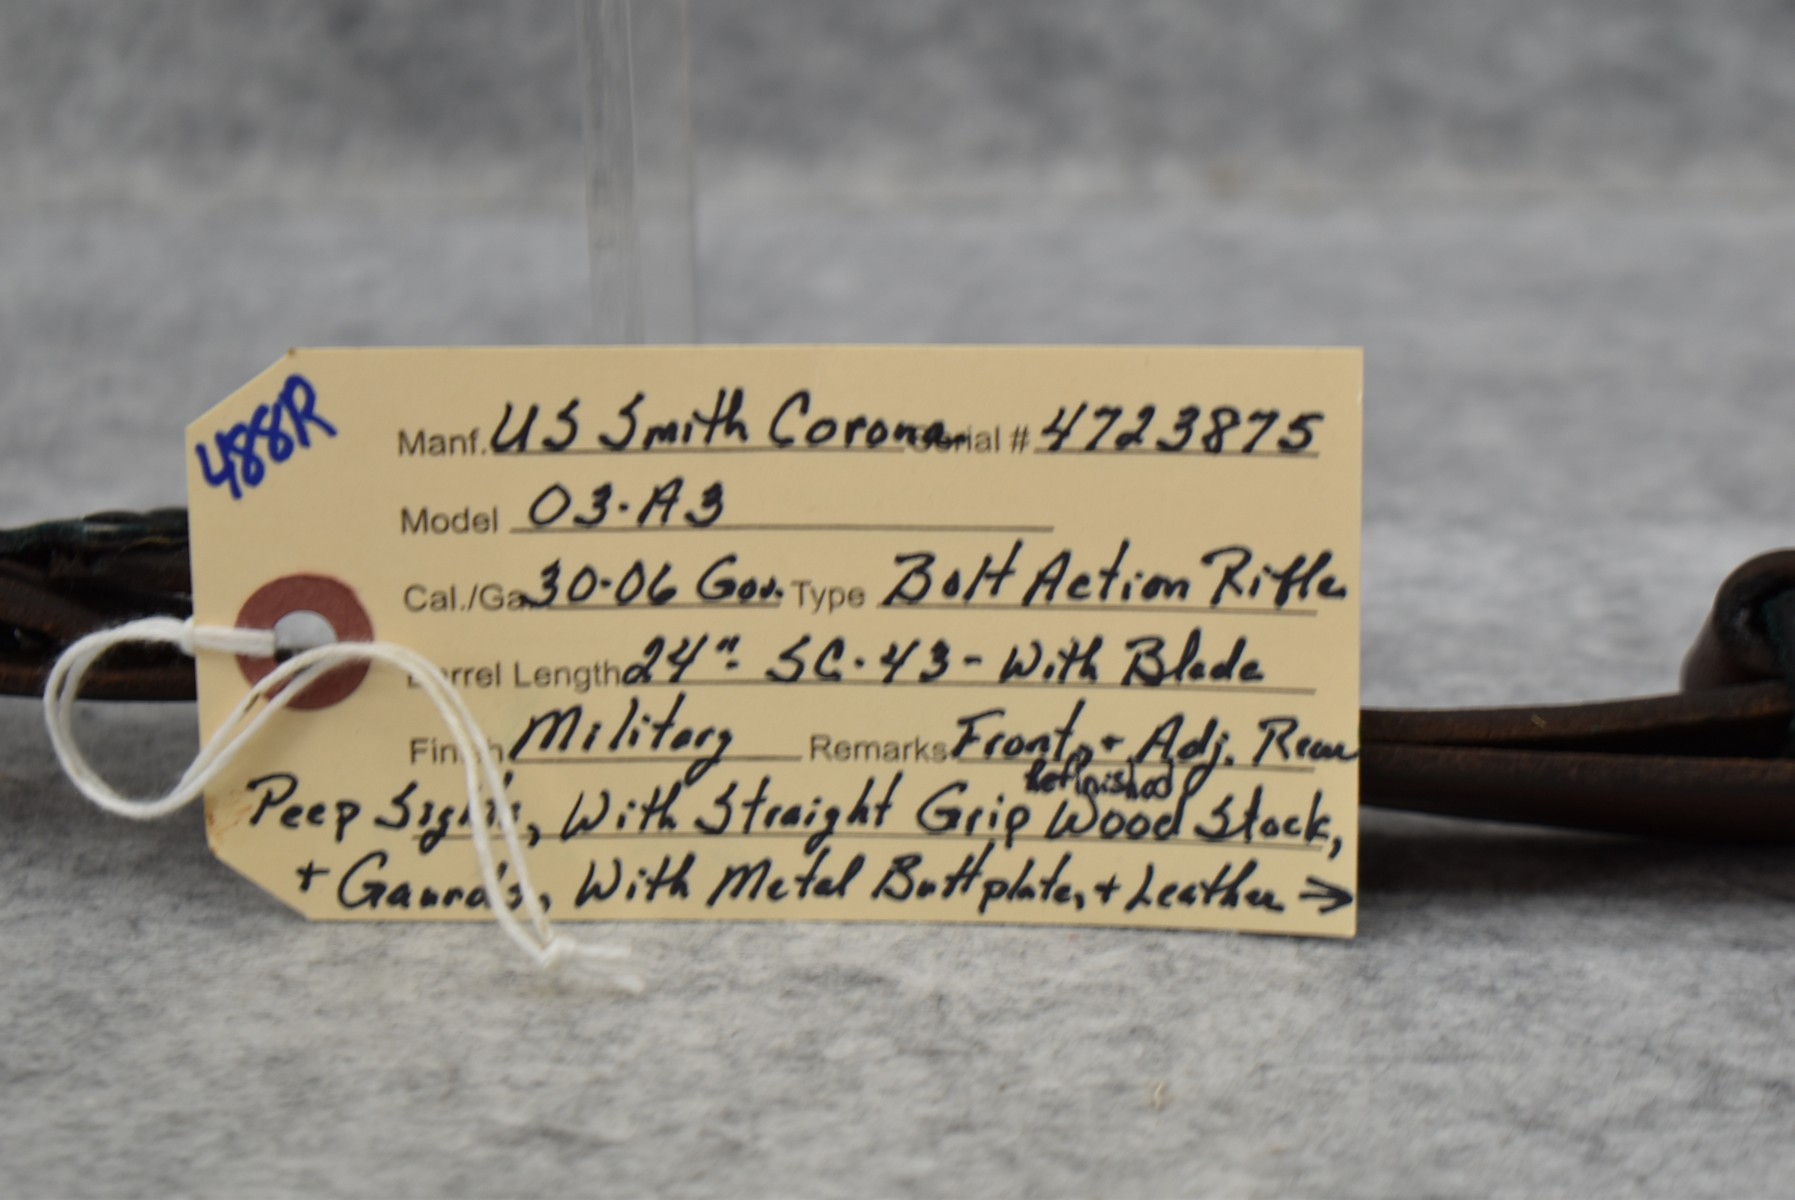 488R
Manf. US Smith Corona Serial # 4723875
Model 03-A3
Cal./Ga. 30-06 Gov. Type Bolt Action Rifle
Barrel Length 24"- SC-43- With Blade
Finish Military Remarks Front, + Adj. Rear
Refinished
Peep Sights, With Straight Grip Wood Stock,
+ Gaurds, With Metal Buttplate, + Leather →